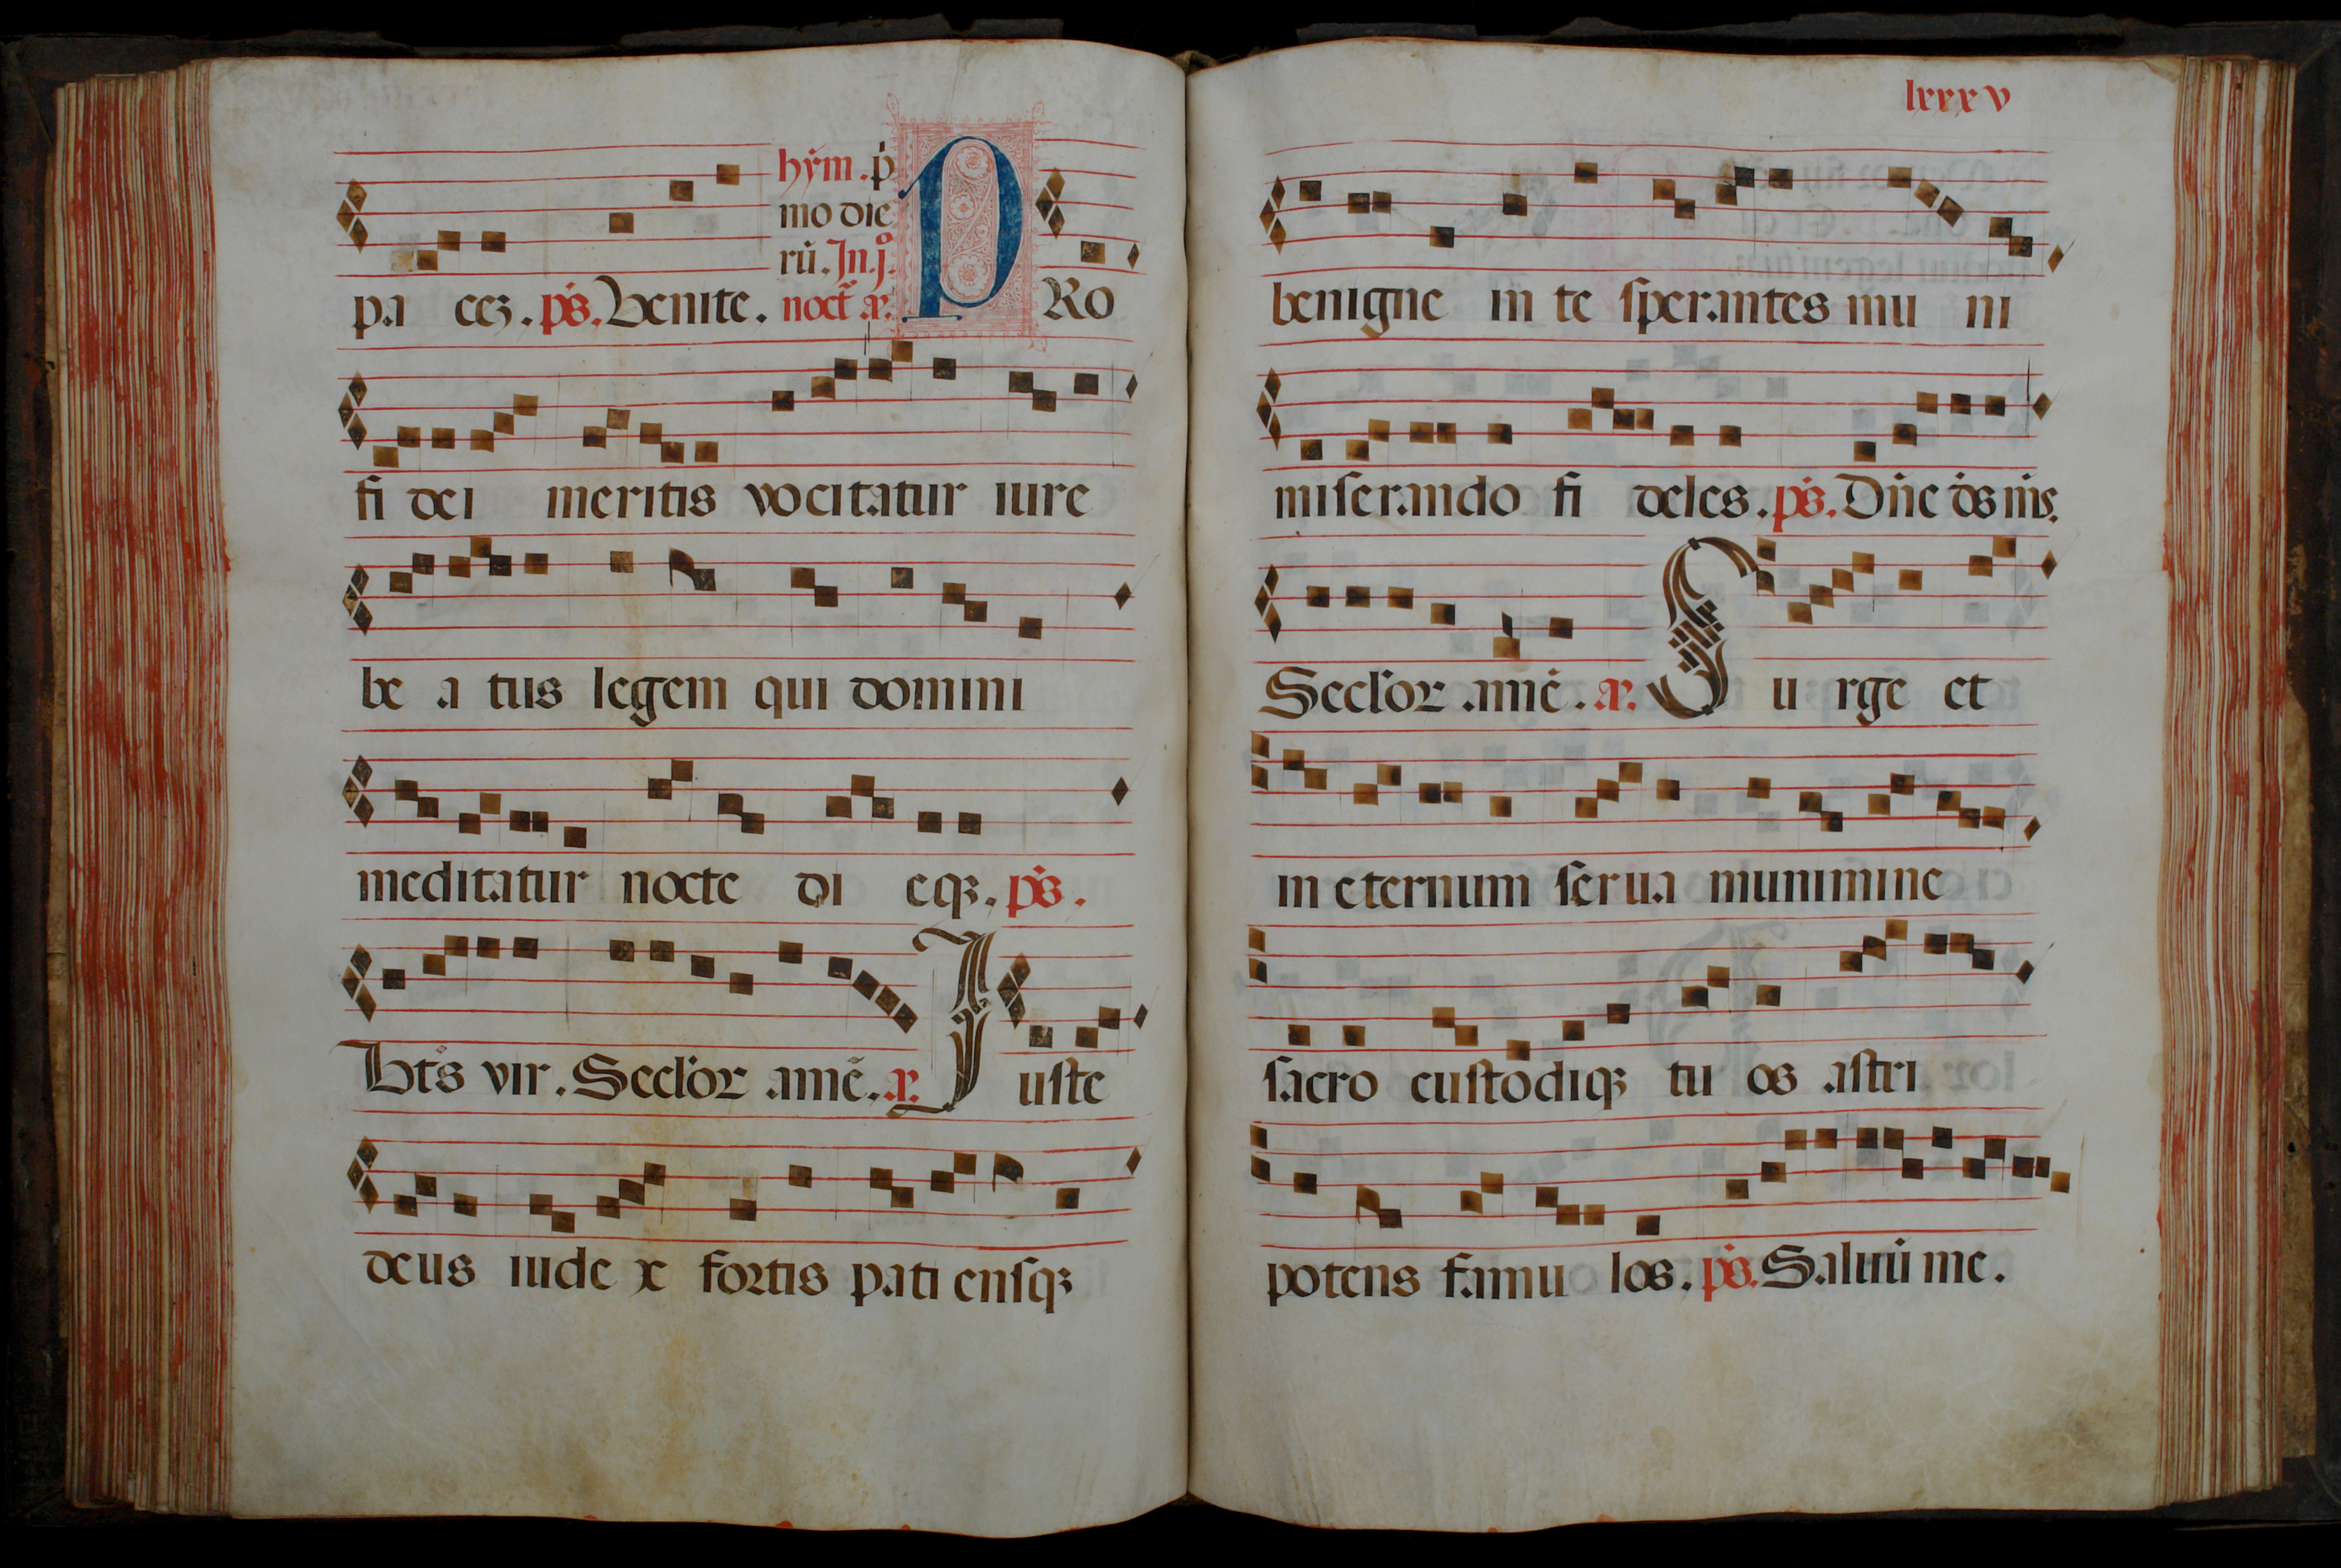 hẏm . ṗ
mo die
rū . In . jº .
pa ceȝ . pṡ . Venite . noct̄ aꝝ . P Ro
fi dei meritis vocitatur iure
be a tus legem qui domini
meditatur nocte di eqȝ . pṡ .
Bt̄s vir . Secl'oꝛ amē . aꝝ . I uste
deus iude x foꝛtis pati enſqȝ
lxxxv
benigne in te ſperantes mu ni
miſerando fi deles . pṡ . Dn̄e ds̄ ms̄ .
Secl'oꝛ amē . aꝝ . S u rge et
in eternum ſerua munimine
ſacro cuſtodiqȝ tu os aſtri
potens famu los . pṡ . Saluū me .